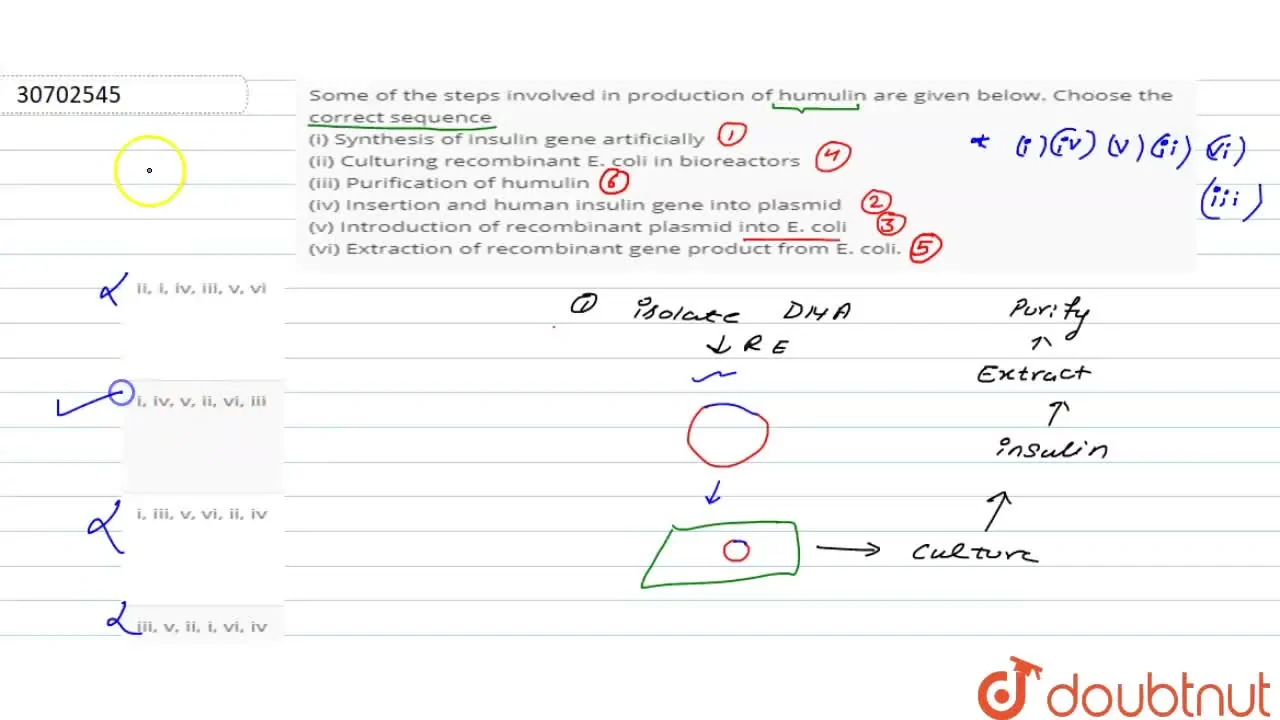 30702545
Some of the steps involved in production of humulin are given below. Choose the
correct sequence
(i) Synthesis of insulin gene artificially 1
(ii) Culturing recombinant E. coli in bioreactors 4
(iii) Purification of humulin 6
(iv) Insertion and human insulin gene into plasmid 2
(v) Introduction of recombinant plasmid into E. coli 3
(vi) Extraction of recombinant gene product from E. coli. 5
* (i) (iv) (v) (ii) (vi)
(iii)
ii, i, iv, iii, v, vi
i, iv, v, ii, vi, iii
i, iii, v, vi, ii, iv
iii, v, ii, i, vi, iv
① isolate DNA
↓ R E
↓
→ culture
↑
insulin
↑
Extract
↑
Purify
doubtnut